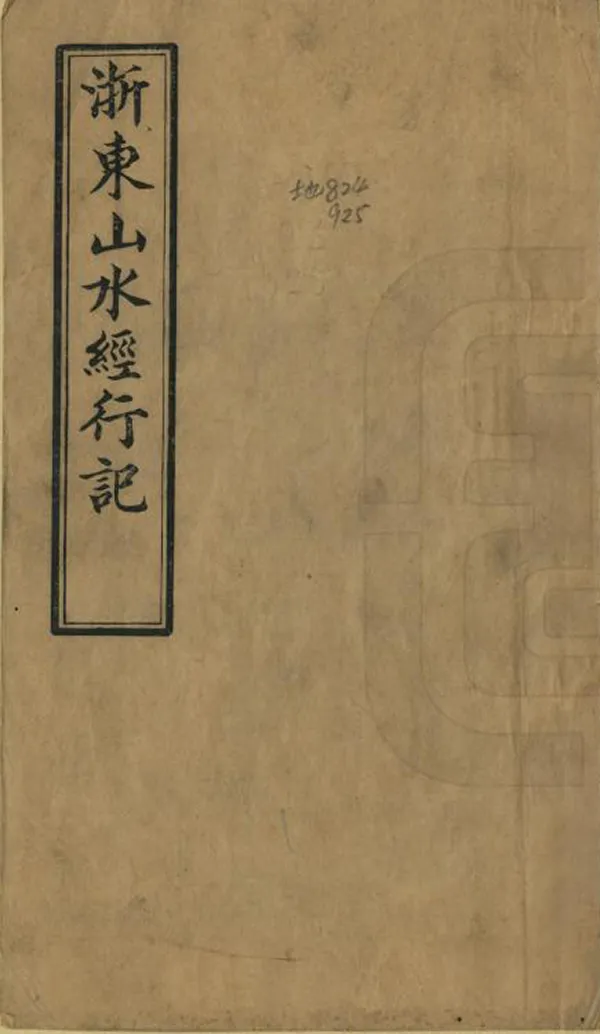 浙東山水經行記
地824
925